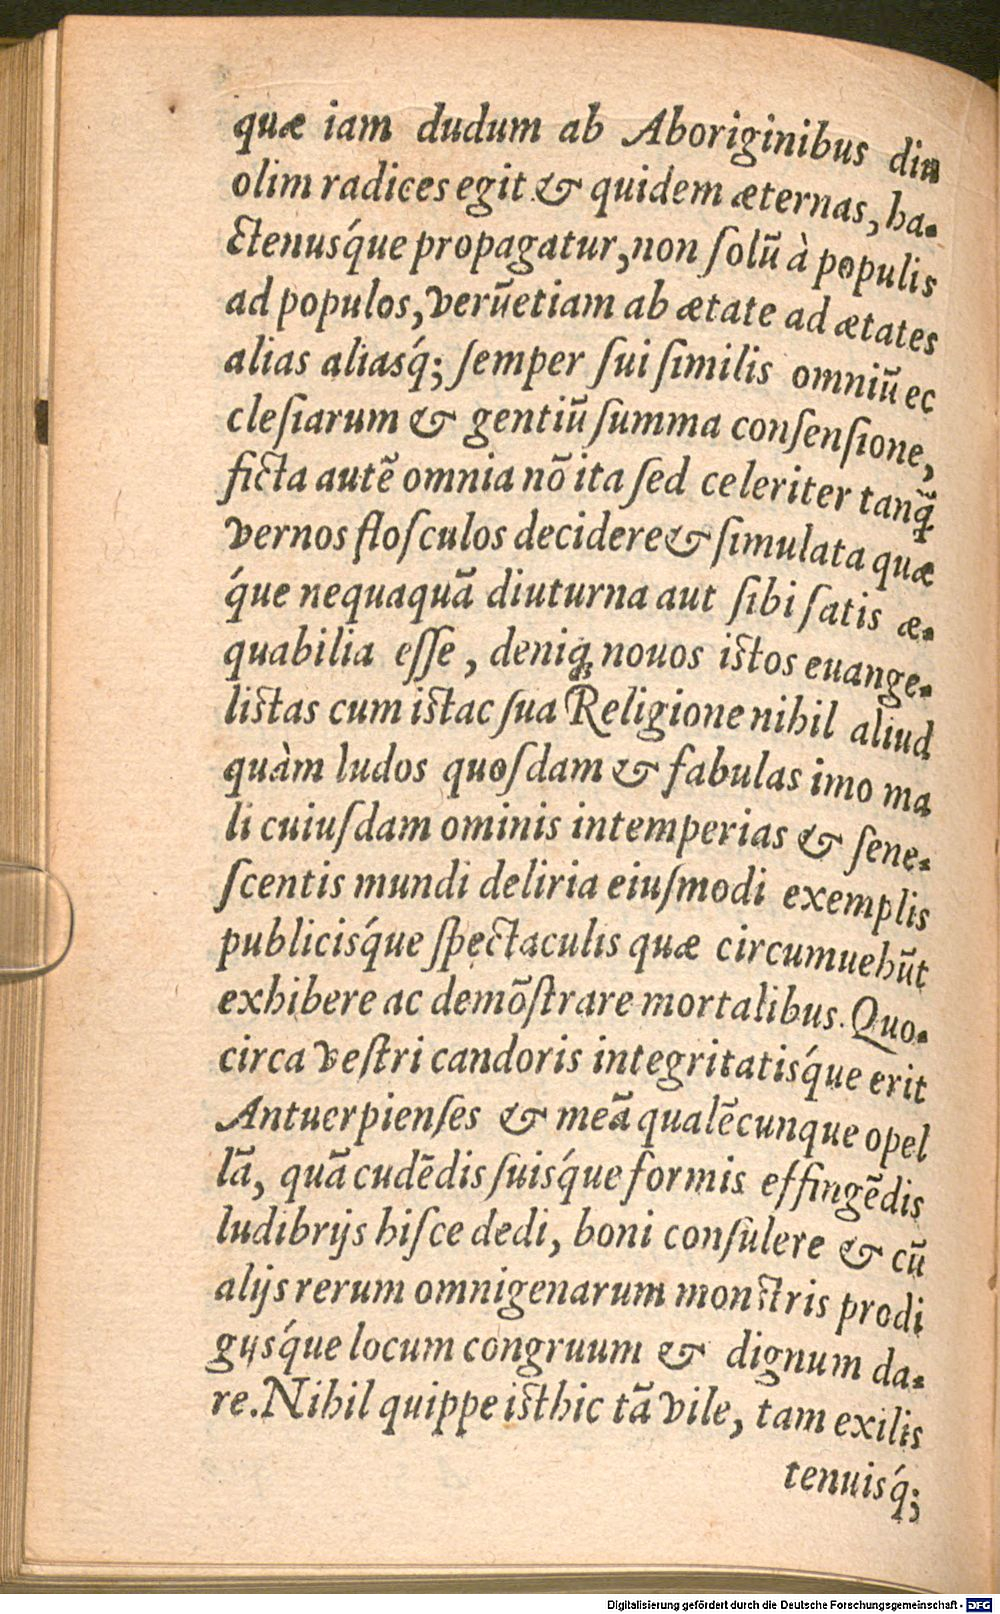 quæ iam dudum ab Aboriginibus diu
olim radices egit & quidem æternas, ha-
ctenusq́ue propagatur, non ſolũ à populis
ad populos, verũetiam ab ætate ad ætates
alias aliasq́; ſemper ſui ſimilis omniũ ec
cleſiarum & gentiũ ſumma conſenſione,
ficta autẽ omnia nõ ita ſed celeriter tanq̃
vernos floſculos decidere & ſimulata quæ
q́ue nequaquã diuturna aut ſibi ſatis æ-
quabilia eſſe, deniq; nouos istos euange-
listas cum istac ſua Religione nihil aliud
quàm ludos quoſdam & fabulas imo ma
li cuiuſdam ominis intemperias & ſene-
ſcentis mundi deliria eiuſmodi exemplis
publicisq́ue ſpectaculis quæ circumuehũt
exhibere ac demõſtrare mortalibus. Quo-
circa veſtri candoris integritatisq́ue erit
Antuerpienſes & meã qualẽcunque opel
lã, quã cudẽdis ſuisq́ue formis effingẽdis
ludibrijs hiſce dedi, boni conſulere & cũ
alijs rerum omnigenarum monſtris prodi
gijsq́ue locum congruum & dignum da-
re. Nihil quippe isthic tã vile, tam exilis
tenuisq́;
Digitalisierung gefördert durch die Deutsche Forschungsgemeinschaft - DFG